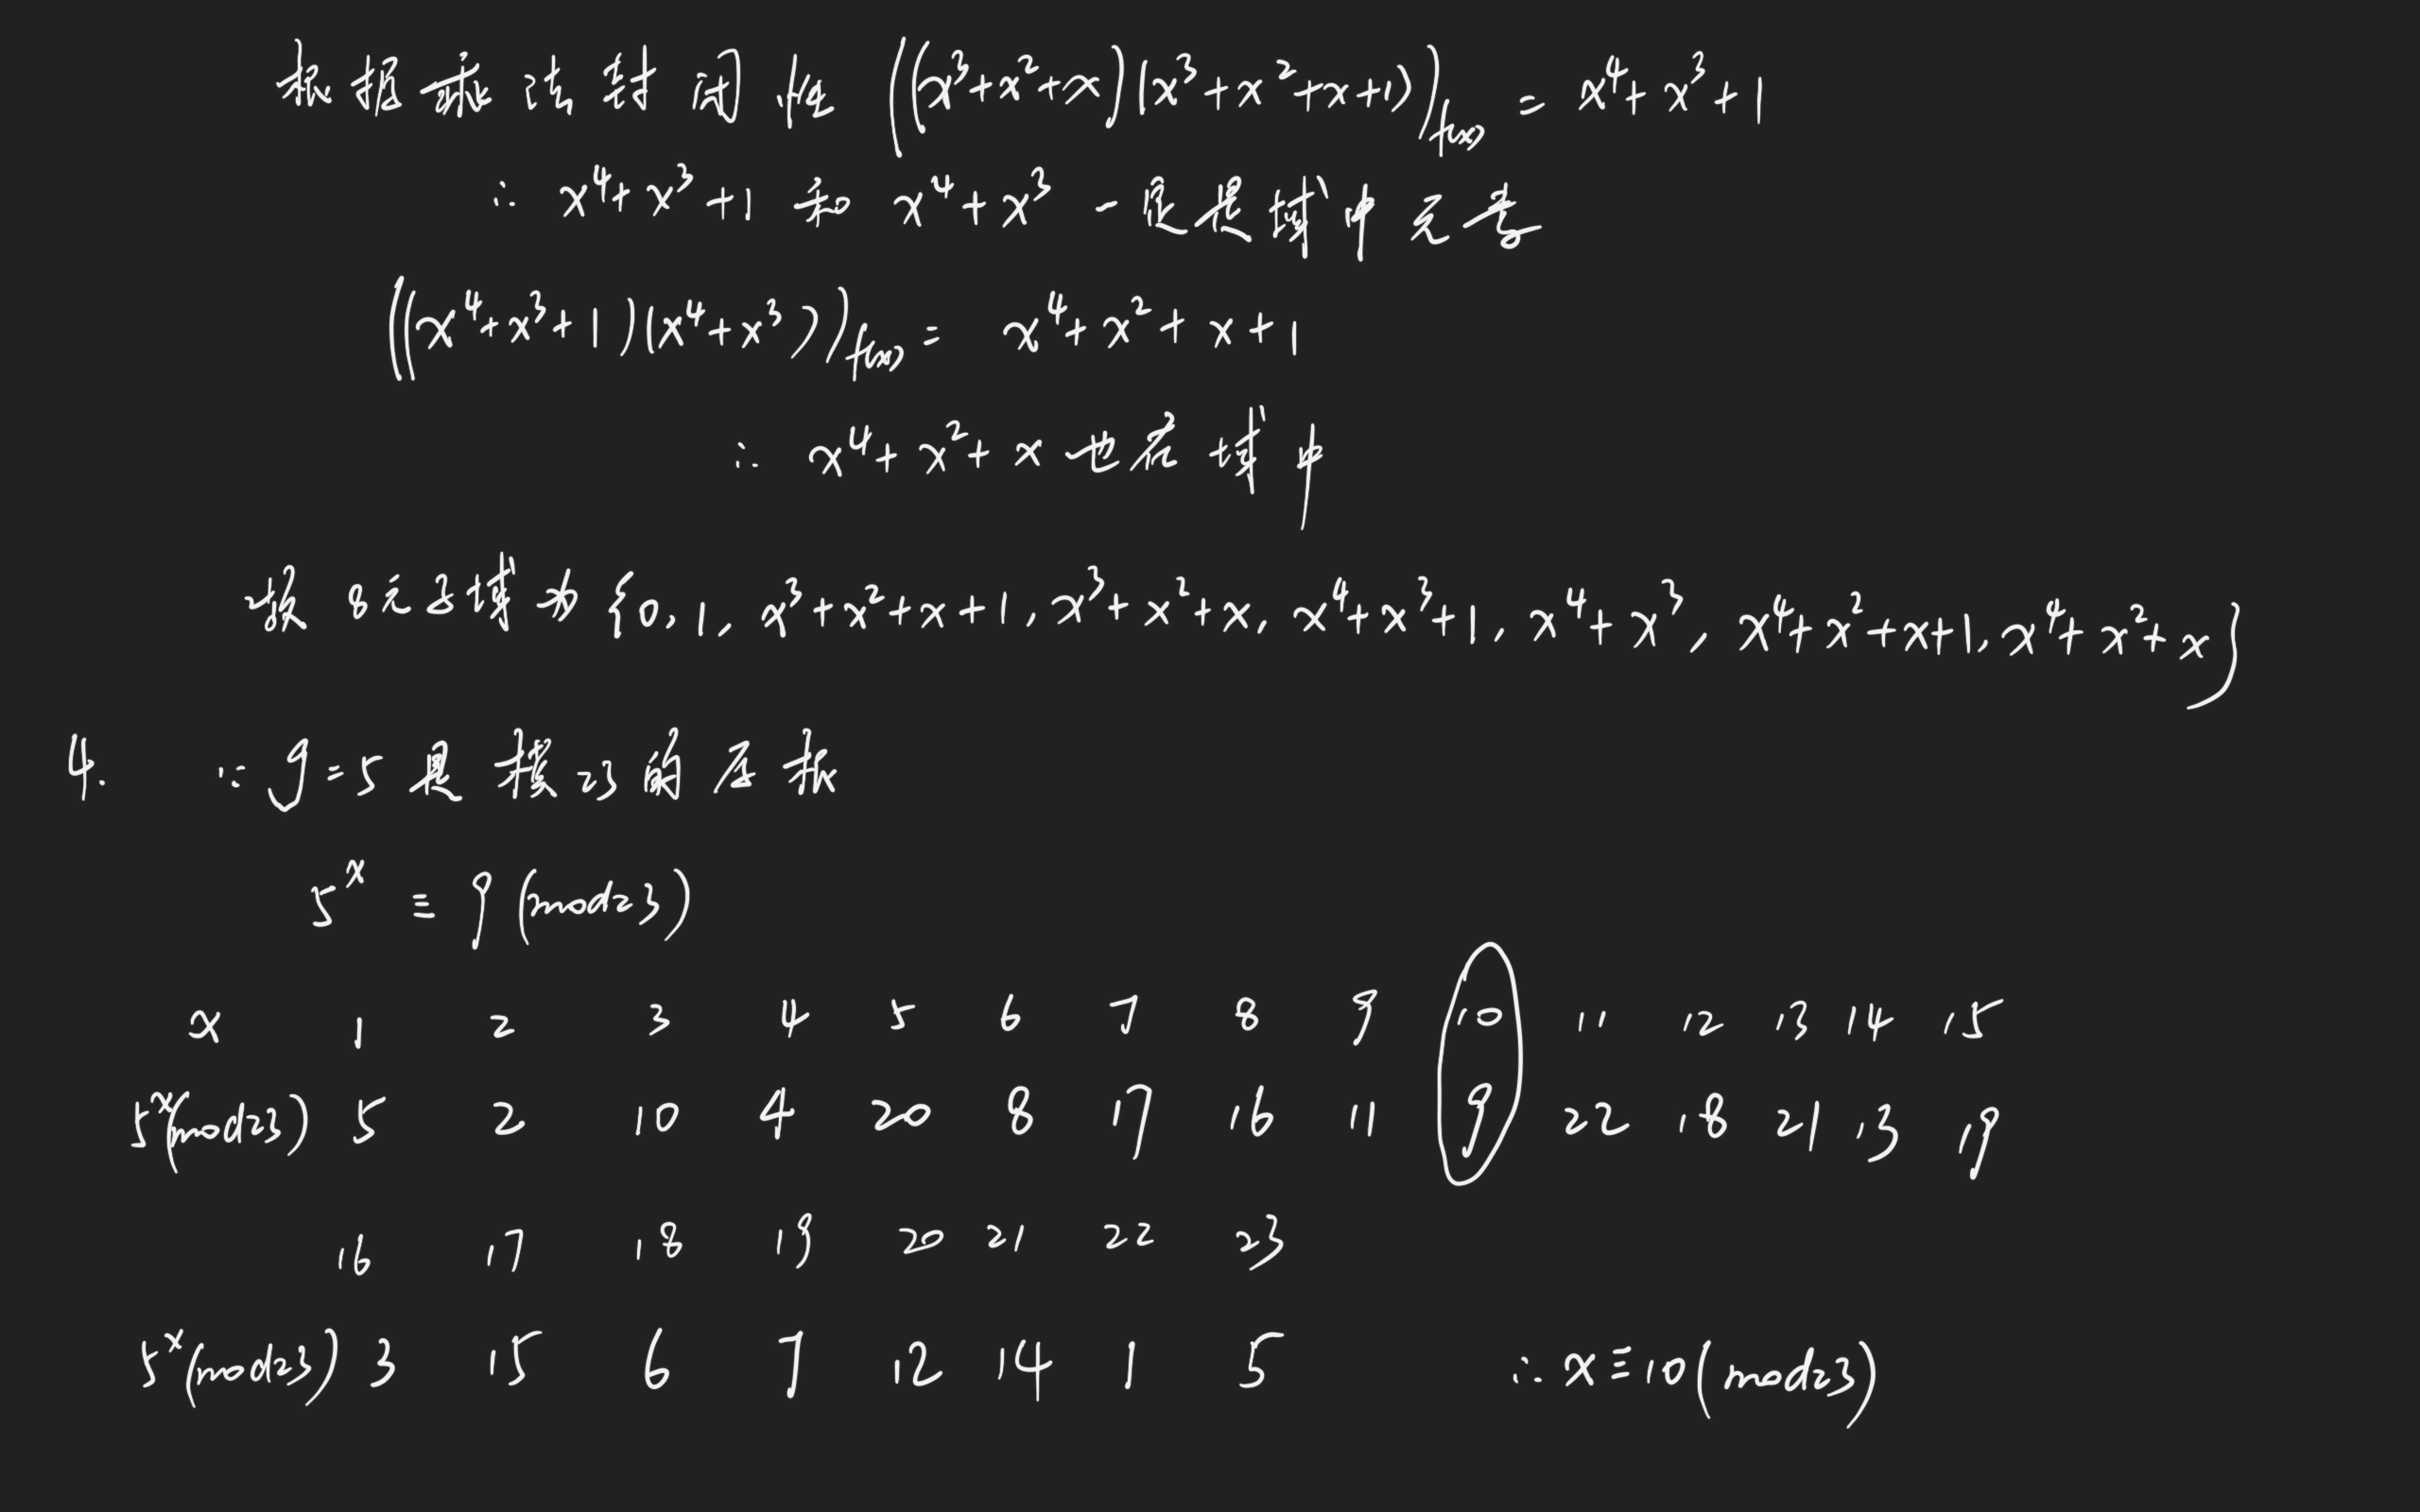 根据乘法封闭性 ((x³+x²+x)(x³+x²+x+1))f(x) = x⁴+x³+1
∴ x⁴+x³+1 和 x⁴+x³ 一定是域中元素
((x⁴+x³+1)(x⁴+x³))f(x) = x⁴+x²+x+1
∴ x⁴+x²+x 也在域中
故 8元子域为 {0, 1, x³+x²+x+1, x³+x²+x, x⁴+x³+1, x⁴+x³, x⁴+x²+x+1, x⁴+x²+x}
4. ∵ g=5 是模23的原根
5ˣ ≡ 9 (mod23)
x 1 2 3 4 5 6 7 8 9 10 11 12 13 14 15
5ˣ(mod23) 5 2 10 4 20 8 17 16 11 9 22 18 21 13 19
16 17 18 19 20 21 22 23
5ˣ(mod23) 3 15 6 7 12 14 1 5 ∴ x≡10(mod23)